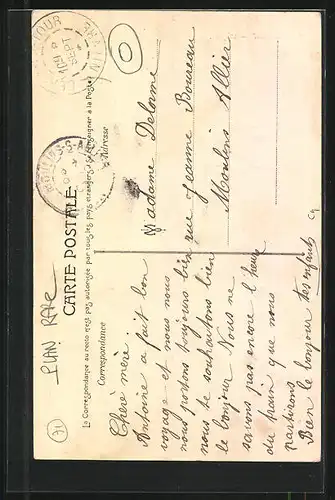 PLAN RARE
CARTE POSTALE
La Correspondance au recto n'est pas autorisée par tous les pays étrangers (Se renseigner à la Poste)
Correspondance
Adresse
MOULINS-S-A
Chère mère
Antoine a fait bon
voyage et nous nous
nous portons toujours bien
nous te souhaitons bien
le bonjour Nous ne
savons pas encore l'heure
du train que nous
partirons
Bien le bonjour tes enfants
Madame Delorme
rue Jeanne Boureau
Moulins Allier